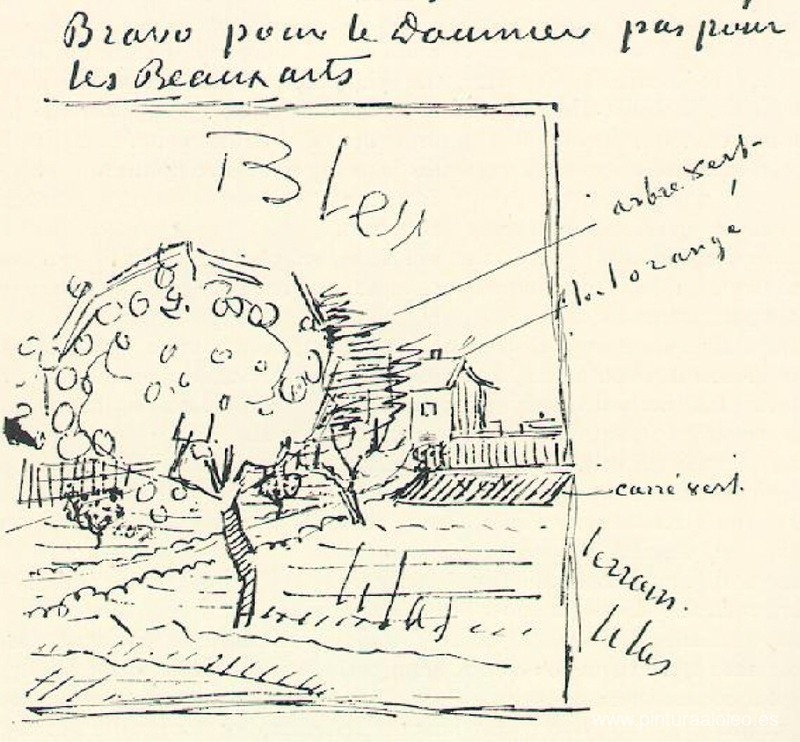 Bravo pour le Daumier pas pour
les Beaux arts
Bleu
arbre vert
orangé
carré vert.
terrain.
lilas
www.pinturaaloleo.es